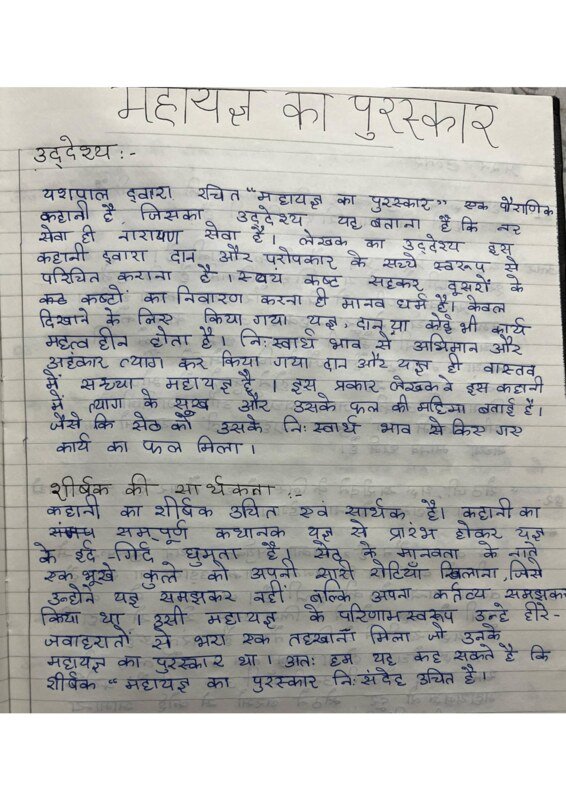 महायज्ञ का पुरस्कार
उद्देश्य :-
यशपाल द्वारा रचित "महायज्ञ का पुरस्कार" एक पौराणिक
कहानी है जिसका उद्देश्य यह बताना है कि नर
सेवा ही नारायण सेवा है। लेखक का उद्देश्य इस
कहानी द्वारा दान और परोपकार के सच्चे स्वरूप से
परिचित कराना है। स्वयं कष्ट सहकर दूसरों के
कष्टों का निवारण करना ही मानव धर्म है। केवल
दिखाने के लिए किया गया यज्ञ, दान या कोई भी कार्य
महत्वहीन होता है। निःस्वार्थ भाव से अभिमान और
अहंकार त्याग कर किया गया दान और यज्ञ ही वास्तव
में सच्चा महायज्ञ है। इस प्रकार लेखक ने इस कहानी
में त्याग के सुख और उसके फल की महिमा बताई है।
जैसे कि सेठ को उसके निःस्वार्थ भाव से किए गए
कार्य का फल मिला।
शीर्षक की सार्थकता :-
कहानी का शीर्षक उचित एवं सार्थक है। कहानी का
सम्पूर्ण कथानक यज्ञ से प्रारंभ होकर यज्ञ
के इर्द-गिर्द घुमता है। सेठ के मानवता के नाते
एक भूखे कुत्ते को अपनी सारी रोटियाँ खिलाना, जिसे
उन्होने यज्ञ समझकर नहीं बल्कि अपना कर्तव्य समझकर
किया था। उसी महायज्ञ के परिणामस्वरूप उन्हे हीरे-
जवाहरातों से भरा एक तहखाना मिला जो उनके
महायज्ञ का पुरस्कार था। अतः हम यह कह सकते है कि
शीर्षक "महायज्ञ का पुरस्कार निःसंदेह उचित है।